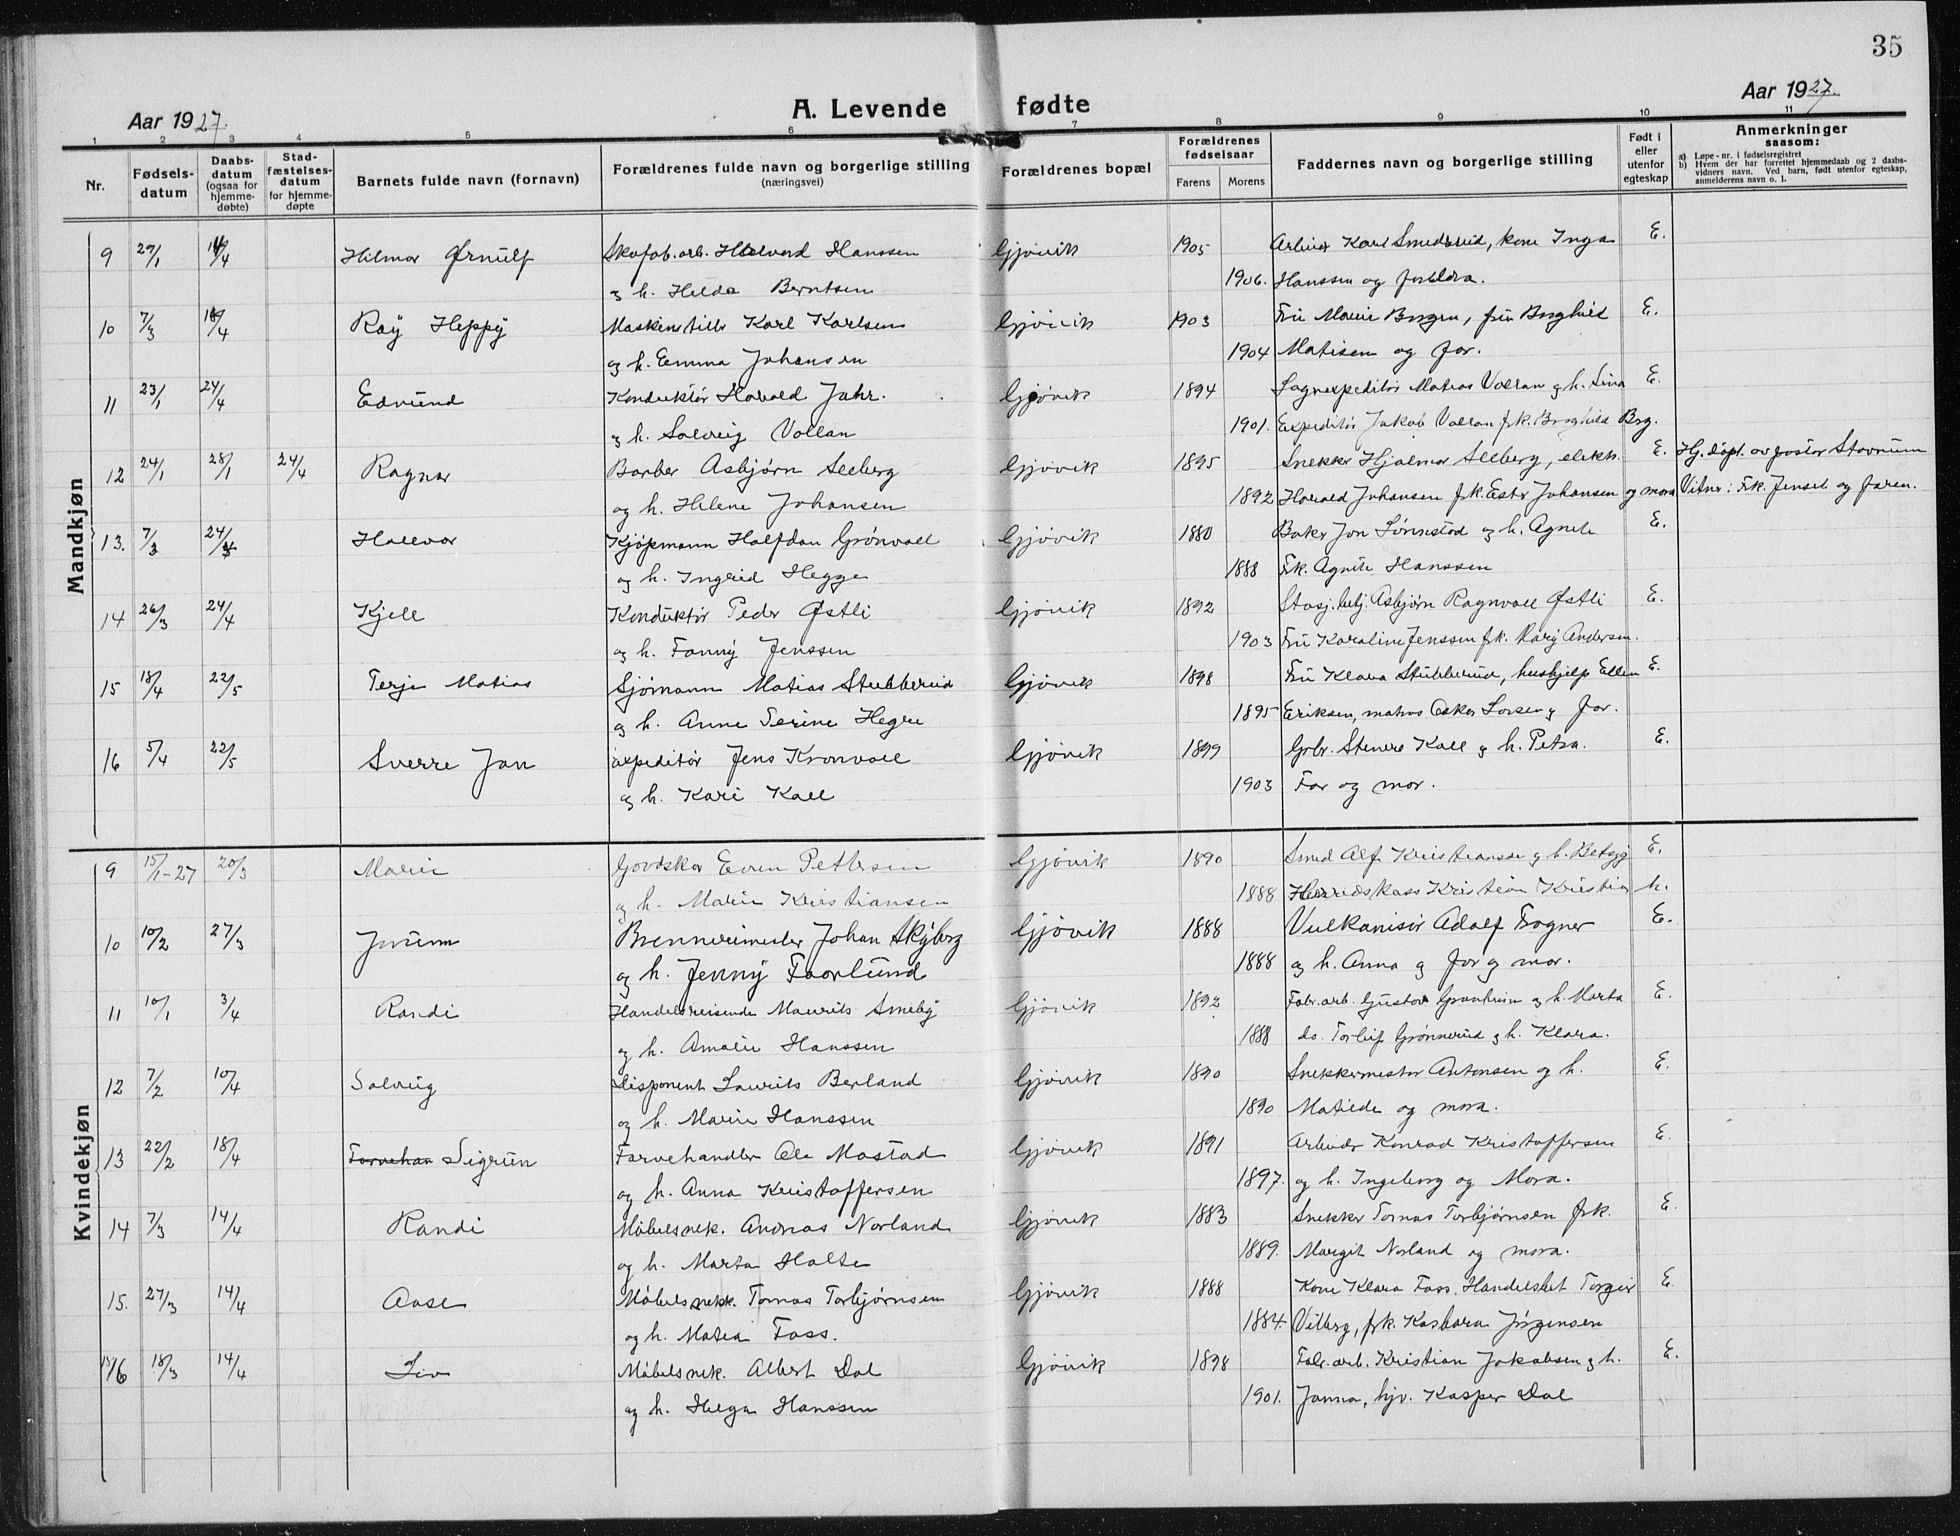 35
Aar 1927.
A. Levende fødte
Aar 1927.
1 2 3 4 5 6 7 8 9 10 11
Nr.
Fødsels-
datum
Daabs-
datum
(ogsaa for
hjemme-
døbte)
Stad-
fæstelses-
datum
for hjemme-
døpte
Barnets fulde navn (fornavn)
Forældrenes fulde navn og borgerlige stilling
(næringsvei)
Forældrenes bopæl
Forældrenes
fødselsaar
Farens Morens
Faddernes navn og borgerlige stilling
Født i
eller
utenfor
egteskap
Anmerkninger
saasom:
a) Løpe-nr. i fødselsregistret
b) Hvem der har forrettet hjemmedaab og 2 daabs-
vidners navn. Ved barn, født utenfor egteskap,
anmelderens navn o. l.
Mandkjøn
9 29/1 /4 Hilmar Ørnulf Skofab.arb. Halvord Hanssen Gjøvik 1905 Arbeider Karl Smedsrud, kone Inga E.
og h. Hilda Berntsen 1906. Hanssen og foreldra.
10 7/3 /4 Roy Heppy Karl Karlsen Gjøvik 1903 Fru Marie Bergen, fru Borghild E.
og h. Emma Johansen 1904 Matisen og far.
11 23/1 24/4 Edvund Konduktør Harald Jahr. Gjøvik 1894 Lagerexpeditør Matias Vollan og h. Lina E.
og h. Solveig Vollan 1901. Expeditør Jakob Vollan frk. Borghild Berg.
12 24/1 28/1 24/4 Ragnar Barber Asbjørn Seeberg Gjøvik 1895 Snekker Hjalmar Seeberg, elektr. E. Hj.døpt. av pastor Stavnum
og h. Helene Johansen 1892 Harald Johansen frk. Ester Johansen og mora Vitner: Frk. Jenset og faren.
13. 7/3 24/4 Hallvar Kjøpmann Halfdan Grønvoll Gjøvik 1880 Baker Jon Sønnstød og h. Agnete E.
og h. Ingrid Hegge 1888 Frk. Agnete Hanssen
14 26/3 24/4 Kjell Konduktør Peder Østli Gjøvik 1892 Stasj.betj. Asbjørn Ragnvall Østli E.
og h. Fanny Jenssen 1903 Fru Karoline Jenssen frk. Mary Andersen.
15 18/4 22/5 Terje Matias Sjømann Matias Stubberud Gjøvik 1898 Fru Klara Stubberud, hushjelp Ellen E.
og h. Anne Serine Hegre 1895 Eriksen, matros Oskar Larsen og far.
16 5/4 22/5 Sverre Jan expeditør Jens Kronvall Gjøvik 1899 Grbr. Steners Kall og h. Petra. E.
og h. Kari Kall 1903 Far og mor.
Kvindekjøn
9 15/1-27 20/3 Marie Gårdskar Even Pettersen Gjøvik 1890 Smed Alf Kristiansen og h. Betsy E.
og h. Marie Kristiansen 1888 Herredskass Kristian Kristian h.
10 10/2 27/3 Jorunn Brennerimester Johan Skyberg Gjøvik 1888 Vulkanisør Adolf Frogner E.
og h. Jenny Faarlund 1888 og h. Anna og far og mor.
11 10/1 3/4 Randi Handelsreisende Maurits Smeby Gjøvik 1892 Fabr.arb. Gustav Granheim og h. Marta E.
og h. Amalie Hanssen 1888 do. Torleif Grønnerud og h. Klara.
12 7/2 10/4 Solveig Disponent Laurits Berland Gjøvik 1890 Snekkermester Antonsen og h. E.
og h. Marie Hanssen 1890 Matilde og mora.
13 22/2 18/4 Farvehan Sigrun Farvehandler Ole Mostad Gjøvik 1891 Arbeider Konrad Kristoffersen E.
og h. Anna Kristoffersen 1897. og h. Ingeborg og Mora.
14 7/3 14/4 Randi Møbelsnek. Andreas Norland Gjøvik 1883 Snekker Tomas Torbjørnsen frk. E.
og h. Marta Holte 1889. Margit Norland og mora.
15. 27/3 14/4 Aase Møbelsnekk. Tomas Torbjørnsen Gjøvik 1888 Kone Klara Foss, Handelsbet Torgeir E.
og h. Matea Foss. 1884. Vitberg, frk. Kasbara Jørgensen
16 18/3 14/4 Liv Møbelsnek. Albert Dal Gjøvik 1898 Fabr.arb. Kristian Jakobsen og h. E.
og h. Helga Hanssen 1901. Janna, hjv. Kasper Dal